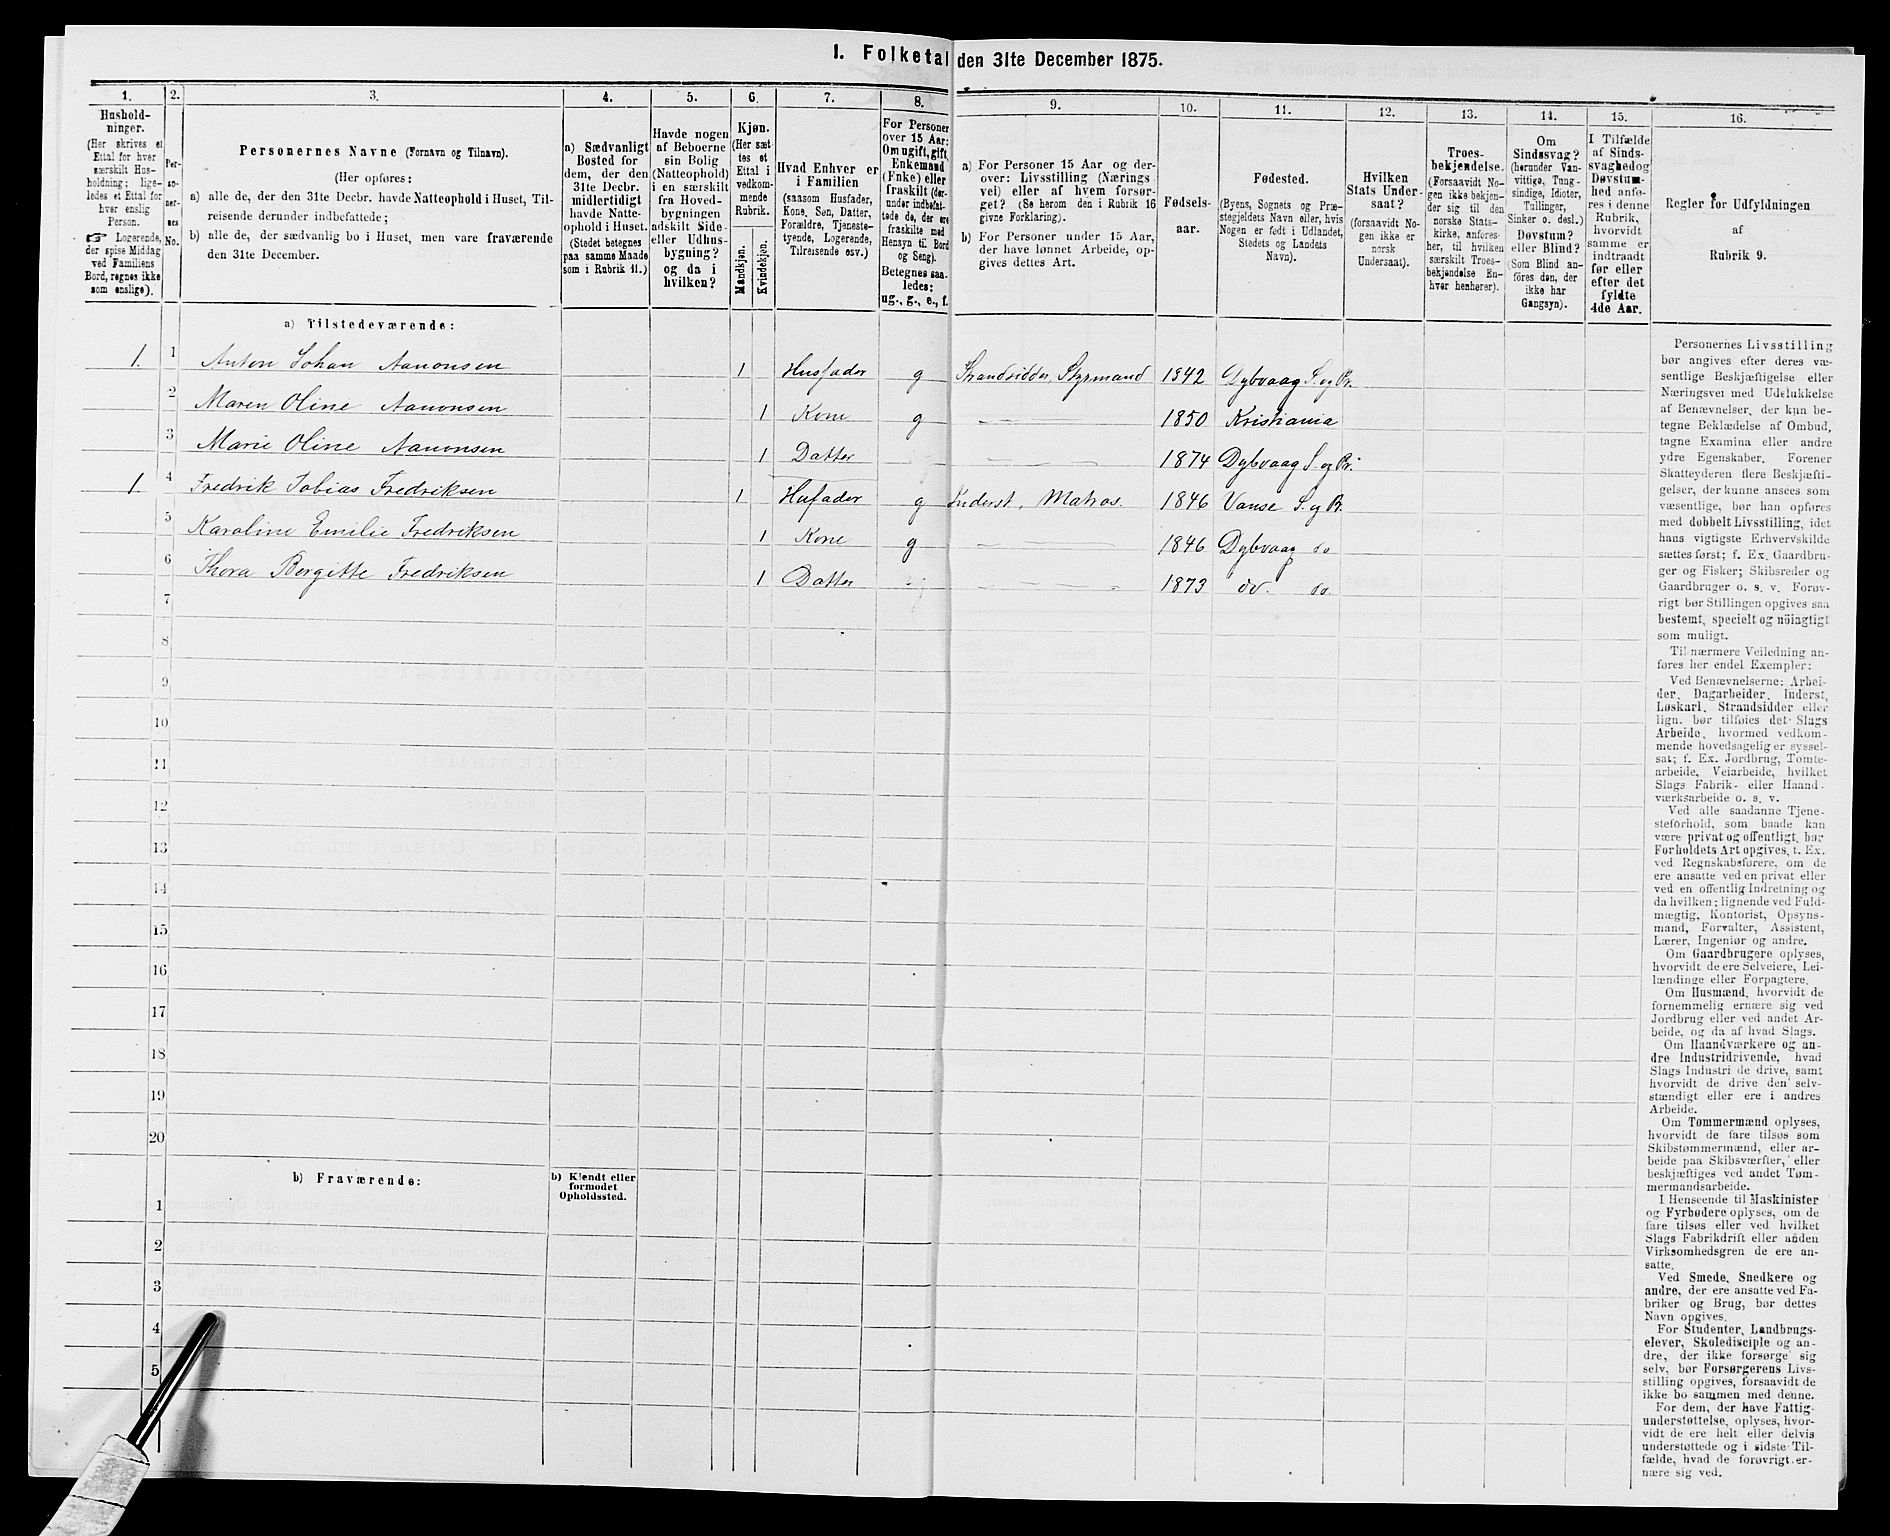 I. Folketal den 31te December 1875.
1. 2. 3. 4. 5. 6. 7. 8. 9. 10. 11. 12. 13. 14. 15. 16.
Hushold-
ninger.
(Her skrives et
Ettal for hver
særskilt Hus-
holdning; lige-
ledes et Ettal for
hver enslig
Person.
☞ Logerende,
der spise Middag
ved Familiens
Bord, regnes ikke
som enslige).
Per-
so-
ner-
nes
No.
Personernes Navne (Fornavn og Tilnavn).
(Her opføres:
a) alle de, der den 31te Decbr. havde Natteophold i Huset, Til-
reisende derunder indbefattede;
b) alle de, der sædvanlig bo i Huset, men vare fraværende
den 31te December.
a) Sædvanligt
Bosted for
dem, der den
31te Decbr.
midlertidigt
havde Natte-
ophold i Huset.
(Stedet betegnes
paa samme Maade
som i Rubrik 11.)
Havde nogen
af Beboerne
sin Bolig
(Natteophold)
i en særskilt
fra Hoved-
bygningen
adskilt Side-
eller Udhus-
bygning?
og da i
hvilken?
Kjøn.
(Her sæt-
tes et
Ettal i
vedkom-
mende
Rubrik.
Mandkjøn.
Kvindekjøn.
Hvad Enhver er
i Familien
(saasom Husfader,
Kone, Søn, Datter,
Forældre, Tjeneste-
tyende, Logerende,
Tilreisende osv.)
For Personer
over 15 Aar:
Om ugift, gift,
Enkemand
(Enke) eller
fraskilt (der-
under indbefat-
tede de, der ere
fraskilte med
Hensyn til Bord
og Seng).
Betegnes saa-
ledes:
ug., g., e., f.
a) For Personer 15 Aar og der-
over: Livsstilling (Nærings-
vei) eller af hvem forsør-
get? (Se herom den i Rubrik 16
givne Forklaring).
b) For Personer under 15 Aar,
der have lønnet Arbeide, op-
gives dettes Art.
Fødsels-
aar.
Fødested.
(Byens, Sognets og Præ-
stegjeldets Navn eller, hvis
Nogen er født i Udlandet,
Stedets og Landets
Navn).
Hvilken
Stats Under-
saat?
(forsaavidt No-
gen ikke er
norsk
Undersaat).
Troes-
bekjendelse.
(Forsaavidt No-
gen ikke bekjen-
der sig til den
norske Stats-
kirke, anføres
her, til hvilken
særskilt Troes-
bekjendelse En-
hver henhører).
Om
Sindssvag?
(herunder Van-
vittige, Tung-
sindige, Idioter,
Tullinger,
Sinker o. desl.)
Døvstum?
eller Blind?
(Som Blind an-
føres den, der
ikke har
Gangsyn).
I Tilfælde
af Sinds-
svaghed og
Døvstum-
hed anfø-
res i denne
Rubrik,
hvorvidt
samme er
indtraadt
før eller
efter det
fyldte
4de Aar.
Regler for Udfyldningen
af
Rubrik 9.
a) Tilstedeværende:
1. 1 Anton Johan Aanonsen 1 Husfader g Strandsidder, Styrmand 1842 Dybvaag S. og Pr.
2 Maren Oline Aanonsen 1 Kone g 1850 Kristiania
3 Marie Oline Aanonsen 1 Datter 1874 Dybvaag S. og Pr.
1. 4 Fredrik Tobias Fredriksen 1 Husfader g Inderst, Matros. 1846 Vanse S. og Pr.
5 Karoline Emilie Fredriksen 1 Kone g 1846 Dybvaag do
6 Thora Bergitte Fredriksen 1 Datter 1873 do. do.
7
8
9
10
11
12
13
14
15
16
17
18
19
20
b) Fraværende:
b) Kjendt eller
formodet
Opholdssted.
1
2
3
4
5
Personernes Livsstilling
bør angives efter deres væ-
sentlige Beskjæftigelse eller
Næringsvei med Udelukkelse
af Benævnelser, der kun be-
tegne Beklædelse af Ombud,
tagne Examina eller andre
ydre Egenskaber. Forener
Skatteyderen flere Beskjæfti-
gelser, der kunne ansees som
væsentlige, bør han opføres
med dobbelt Livsstilling, idet
hans vigtigste Erhvervskilde
sættes først; f. Ex. Gaardbru-
ger og Fisker; Skibsreder og
Gaardbruger o. s. v. Forøv-
rigt bør Stillingen opgives saa
bestemt, specielt og nøiagtigt
som muligt.
Til nærmere Veiledning an-
føres her endel Exempler:
Ved Benævnelserne: Arbei-
der, Dagarbeider, Inderst,
Løskarl, Strandsidder eller
lign. bør tilføies det Slags
Arbeide, hvormed vedkom-
mende hovedsagelig er syssel-
sat; f. Ex. Jordbrug, Tomte-
arbeide, Veiarbeide, hvilket
Slags Fabrik- eller Haand-
værksarbeide o. s. v.
Ved alle saadanne Tjene-
steforhold, som baade kan
være privat og offentligt, bør
Forholdets Art opgives, f. Ex.
ved Regnskabsførere, om de
ere ansatte ved en privat eller
ved en offentlig Indretning og
da hvilken; lignende ved Fuld-
mægtig, Kontorist, Opsyns-
mand, Forvalter, Assistent,
Lærer, Ingeniør og andre.
Om Gaardbrugere oplyses,
hvorvidt de ere Selveiere, Lei-
lændinge eller Forpagtere.
Om Husmænd, hvorvidt de
fornemmelig ernære sig ved
Jordbrug eller ved andet Ar-
beide, og da af hvad Slags.
Om Haandværkere og an-
dre Industridrivende, hvad
Slags Industri de drive, samt
hvorvidt de drive den selv-
stændigt eller ere i andres
Arbeide.
Om Tømmermænd oplyses,
hvorvidt de fare tilsøs som
Skibstømmermænd, eller ar-
beide paa Skibsværfter, eller
beskjæftiges ved andet Tøm-
mermandsarbeide.
I Henseende til Maskinister
og Fyrbødere oplyses, om de
fare tilsøs eller ved hvilket
Slags Fabrikdrift eller anden
Virksomhedsgren de ere an-
satte.
Ved Smede, Snedkere og
andre, der ere ansatte ved Fa-
briker og Brug, bør dettes
Navn opgives.
For Studenter, Landbrugs-
elever, Skoledisciple og an-
dre, der ikke forsørge sig
selv, bør Forsørgerens Livs-
stilling opgives, forsaavidt de
ikke bo sammen med denne.
For dem, der have Fattig-
understøttelse, oplyses, hvor-
vidt de ere helt eller delvis
understøttede og i sidste Til-
fælde, hvad de forøvrigt er-
nære sig ved.